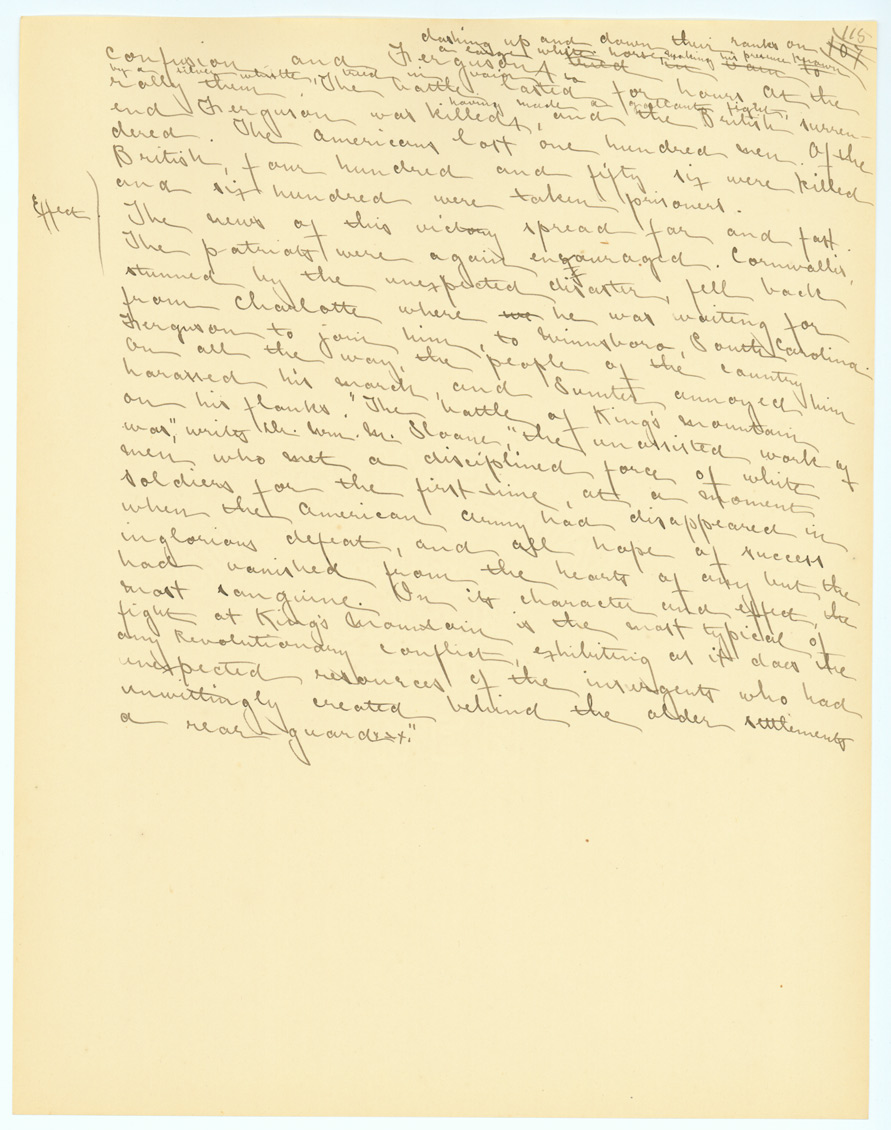 115
107
dashing up and down their ranks on
an eager white horse making his presence known
confusion and Ferguson tried in vain to
by a silver whistle, tried in vain to
rally them. The battle lasted for hours. At the
having made a gallant fight,
end Ferguson was killed, and the British surren-
dered. The Americans lost one hundred men. Of the
British, four hundred and fifty six were killed
and six hundred were taken prisoners.
Effect
The news of this victory spread far and fast.
The patriots were again encouraged. Cornwallis,
stunned by the unexpected disaster, fell back
from Charlotte where he was waiting for
Ferguson to join him, to Winnsboro, South Carolina.
On all the way, the people of the country
harassed his march, and Sumter annoyed him
on his flanks. "The battle of King's Mountain
was," writes Dr. Wm. M. Sloane, "the unassisted work of
men who met a disciplined force of white
soldiers for the first time, at a moment
when the American army had disappeared in
inglorious defeat, and all hope of success
had vanished from the hearts of any but the
most sanguine. In its character and effect, the
fight at King's Mountain is the most typical of
any Revolutionary conflict, exhibiting as it does the
unexpected resources of the insurgents who had
unwittingly created behind the older settlements
a rear guard xxx."